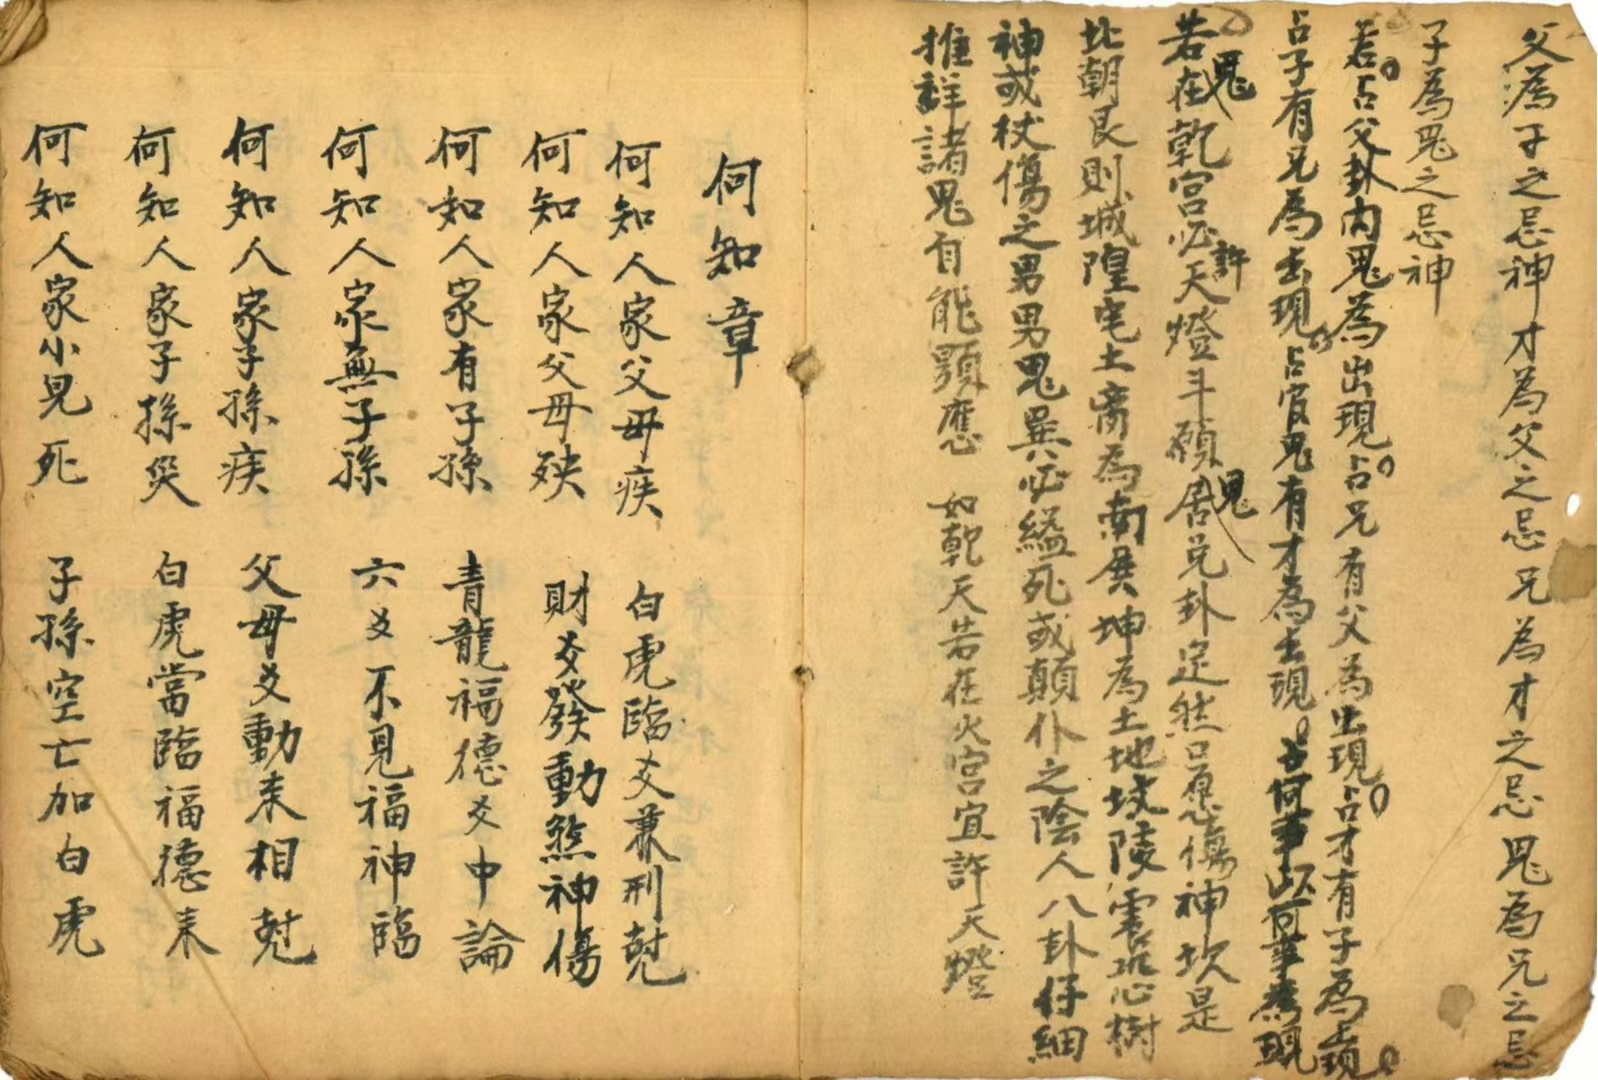 父為子之忌神才為父之忌兄為才之忌鬼為兄之忌
子為鬼之忌神
若占父卦內鬼為出現占兄有父為出現占才有子為出現
占子有兄為出現占官鬼有才為出現占何事以何事為現
若在鬼乾宮必許天燈斗願鬼居兌卦足然口愿傷神坎是
北朝艮則城隍宅土離為南展坤為土地坟陵震恐心樹
神或杖傷之男男鬼巽必縊死或顛仆之陰人八卦仔細
推詳諸鬼自能顯應 如乾天若在火宮宜許天燈
何知章
何知人家父母疾 白虎臨爻兼刑尅
何知人家父母殃 財爻發動煞神傷
何知人家有子孫 青龍福德爻中論
何知人家無子孫 六爻不見福神臨
何知人家子孫疾 父母爻動來相尅
何知人家子孫災 白虎當臨福德來
何知人家小兒死 子孫空亡加白虎